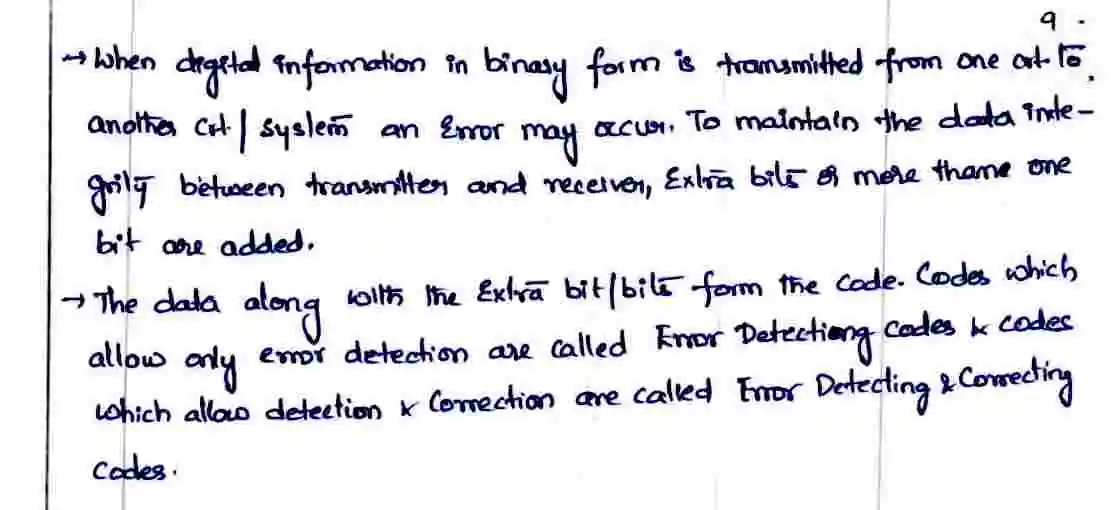 9.
→ When digital information in binary form is transmitted from one ckt. to
another ckt. / system an Error may occur. To maintain the data inte-
grity between transmitter and receiver, Extra bits or more thame one
bit are added.
→ The data along with the Extra bit/bits form the code. Codes which
allow only error detection are called Error Detectiong codes & codes
which allow detection & Correction are called Error Detecting & Correcting
codes.